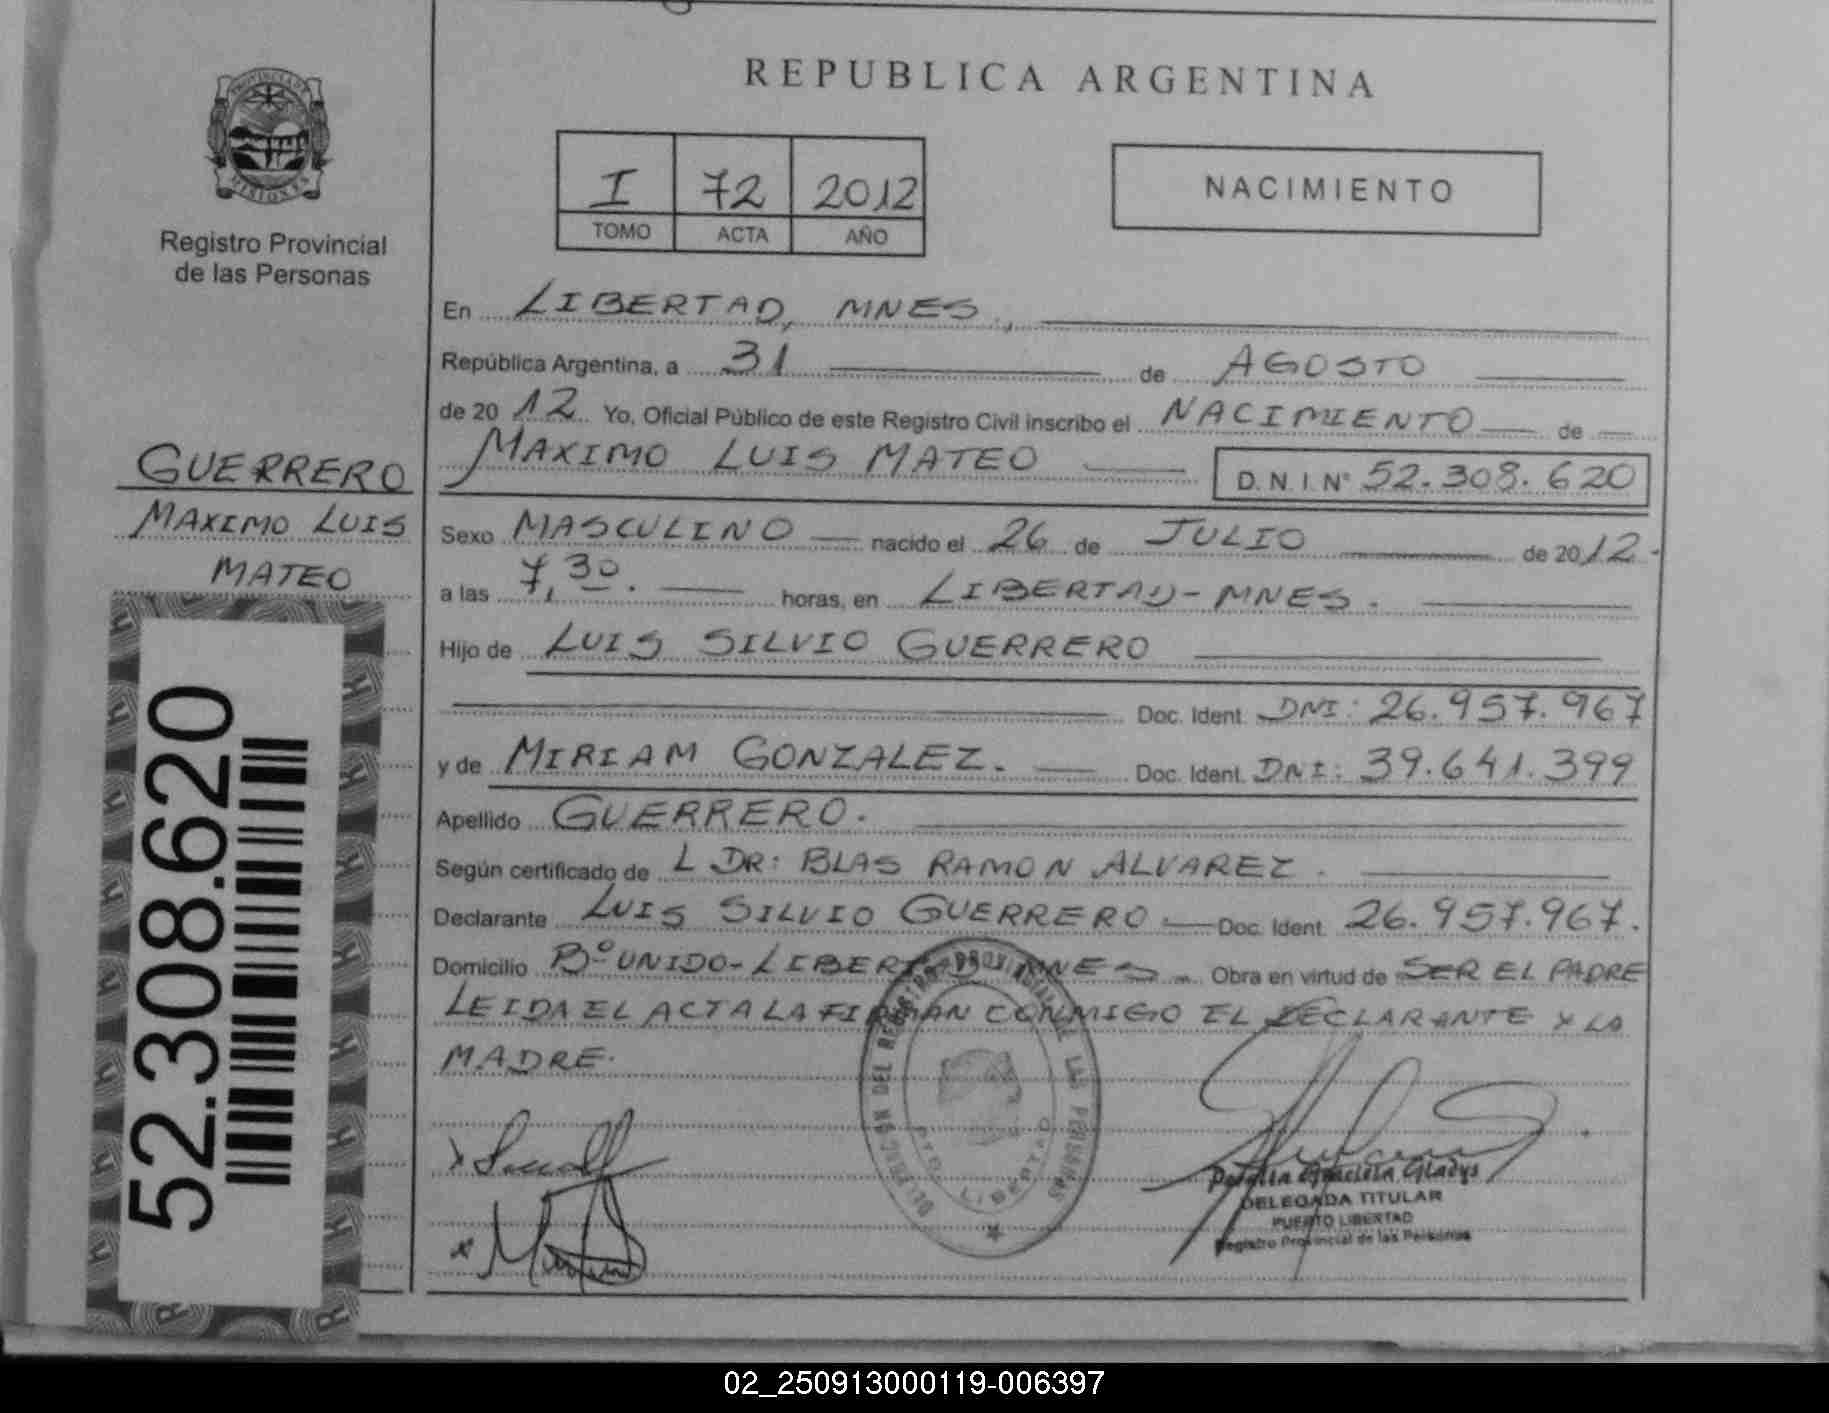 REPUBLICA ARGENTINA
PROVINCIA DE
MISIONES
Registro Provincial
de las Personas
I 72 2012
TOMO ACTA AÑO
NACIMIENTO
En LIBERTAD, MNES,
República Argentina, a 31 de AGOSTO
de 2012 Yo, Oficial Público de este Registro Civil inscribo el NACIMIENTO de
MAXIMO LUIS MATEO D.N.I.Nº 52.308.620
GUERRERO
MAXIMO LUIS
MATEO
Sexo MASCULINO nacido el 26 de JULIO de 2012.
a las 7,30. horas, en LIBERTAD-MNES.
Hijo de LUIS SILVIO GUERRERO
Doc. Ident. DNI: 26.957.967
y de MIRIAM GONZALEZ. Doc. Ident. DNI: 39.641.399
Apellido GUERRERO.
Según certificado de L DR: BLAS RAMON ALVAREZ.
Declarante LUIS SILVIO GUERRERO Doc. Ident. 26.957.967.
Domicilio Bº UNIDO-LIBERTAD MNES. Obra en virtud de SER EL PADRE
LEIDA EL ACTA LA FIRMAN CONMIGO EL DECLARANTE Y LA
MADRE.
52.308.620
DELEGACION DEL REGISTRO PROVINCIAL DE LAS PERSONAS
PTO. LIBERTAD
Gladys
DELEGADA TITULAR
PUERTO LIBERTAD
Registro Provincial de las Personas
02_250913000119-006397